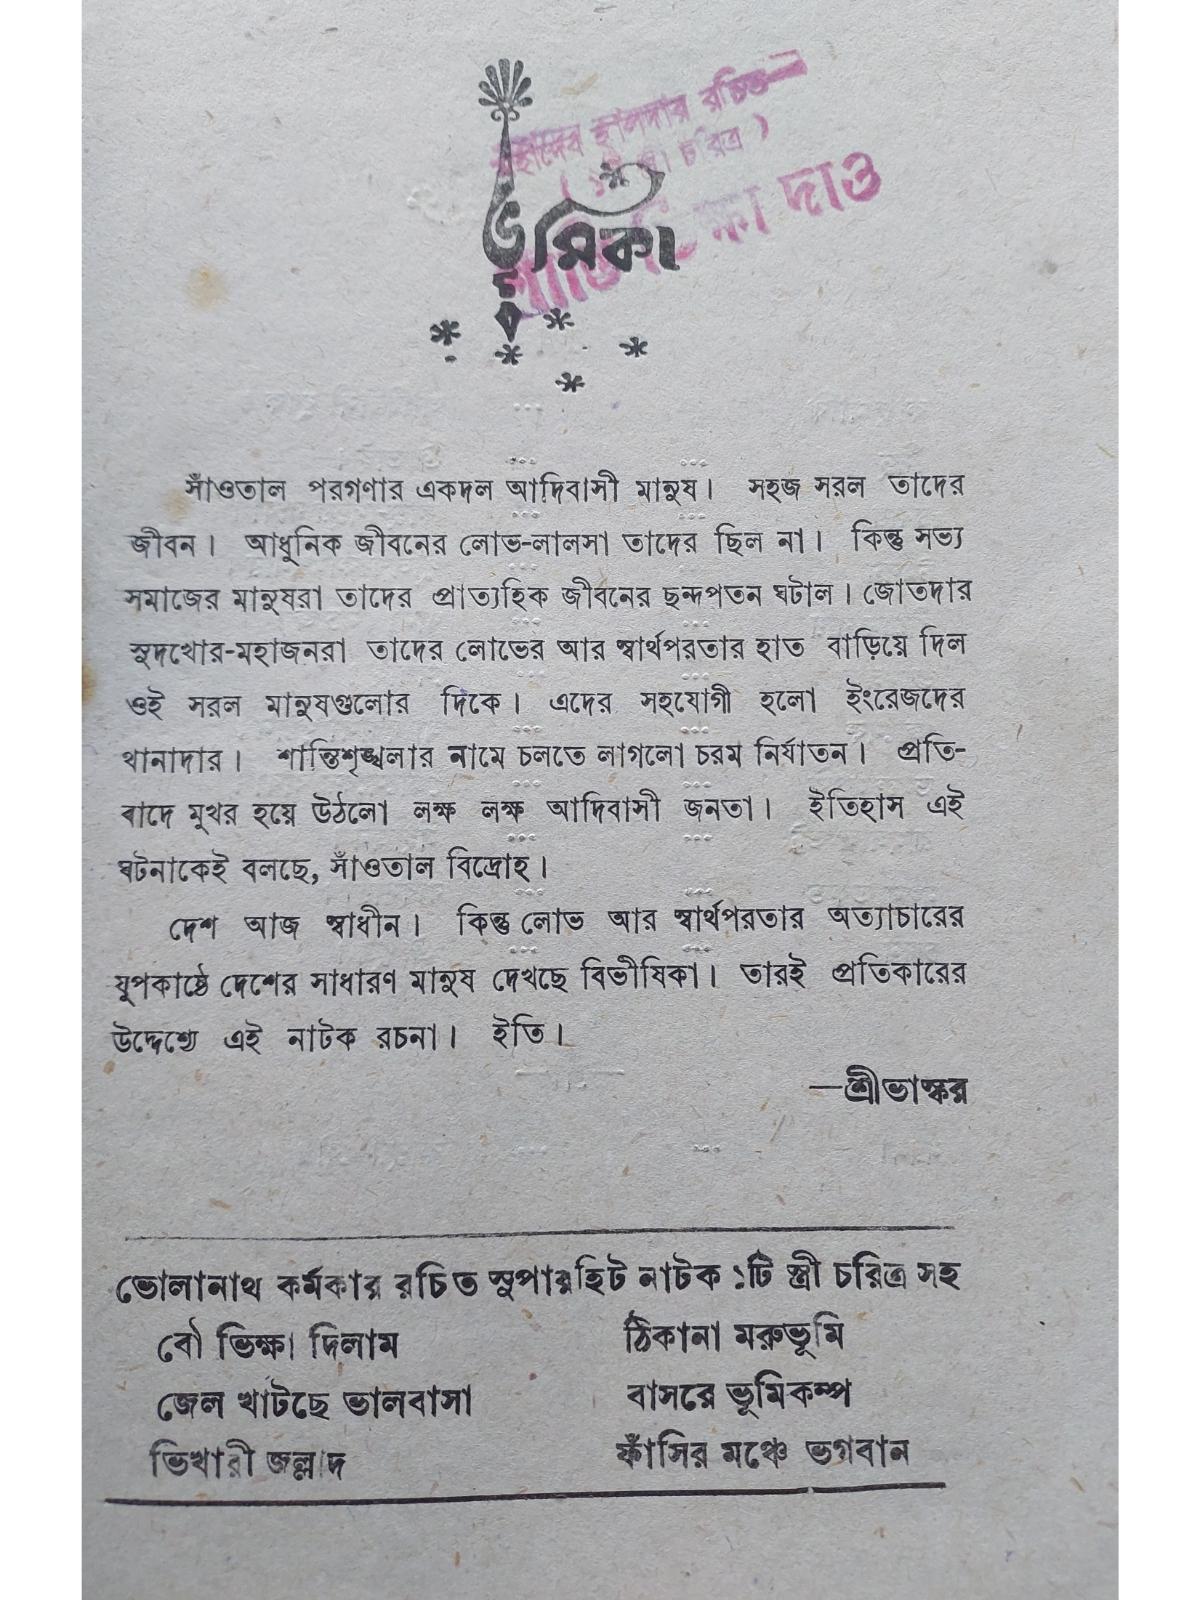 হালদার রচিত
চরিত্র )
দাও
ভূমিকা
সাঁওতাল পরগণার একদল আদিবাসী মানুষ। সহজ সরল তাদের
জীবন। আধুনিক জীবনের লোভ-লালসা তাদের ছিল না। কিন্তু সভ্য
সমাজের মানুষরা তাদের প্রাত্যহিক জীবনের ছন্দপতন ঘটাল। জোতদার
সুদখোর-মহাজনরা তাদের লোভের আর স্বার্থপরতার হাত বাড়িয়ে দিল
ওই সরল মানুষগুলোর দিকে। এদের সহযোগী হলো ইংরেজদের
থানাদার। শান্তিশৃঙ্খলার নামে চলতে লাগলো চরম নির্যাতন। প্রতি-
বাদে মুখর হয়ে উঠলো লক্ষ লক্ষ আদিবাসী জনতা। ইতিহাস এই
ঘটনাকেই বলছে, সাঁওতাল বিদ্রোহ।
দেশ আজ স্বাধীন। কিন্তু লোভ আর স্বার্থপরতার অত্যাচারের
যুপকাষ্ঠে দেশের সাধারণ মানুষ দেখছে বিভীষিকা। তারই প্রতিকারের
উদ্দেশ্যে এই নাটক রচনা। ইতি।
—শ্রীভাস্কর
ভোলানাথ কর্মকার রচিত সুপারহিট নাটক ১টি স্ত্রী চরিত্র সহ
বৌ ভিক্ষা দিলাম ঠিকানা মরুভূমি
জেল খাটছে ভালবাসা বাসরে ভূমিকম্প
ভিখারী জল্লাদ ফাঁসির মঞ্চে ভগবান